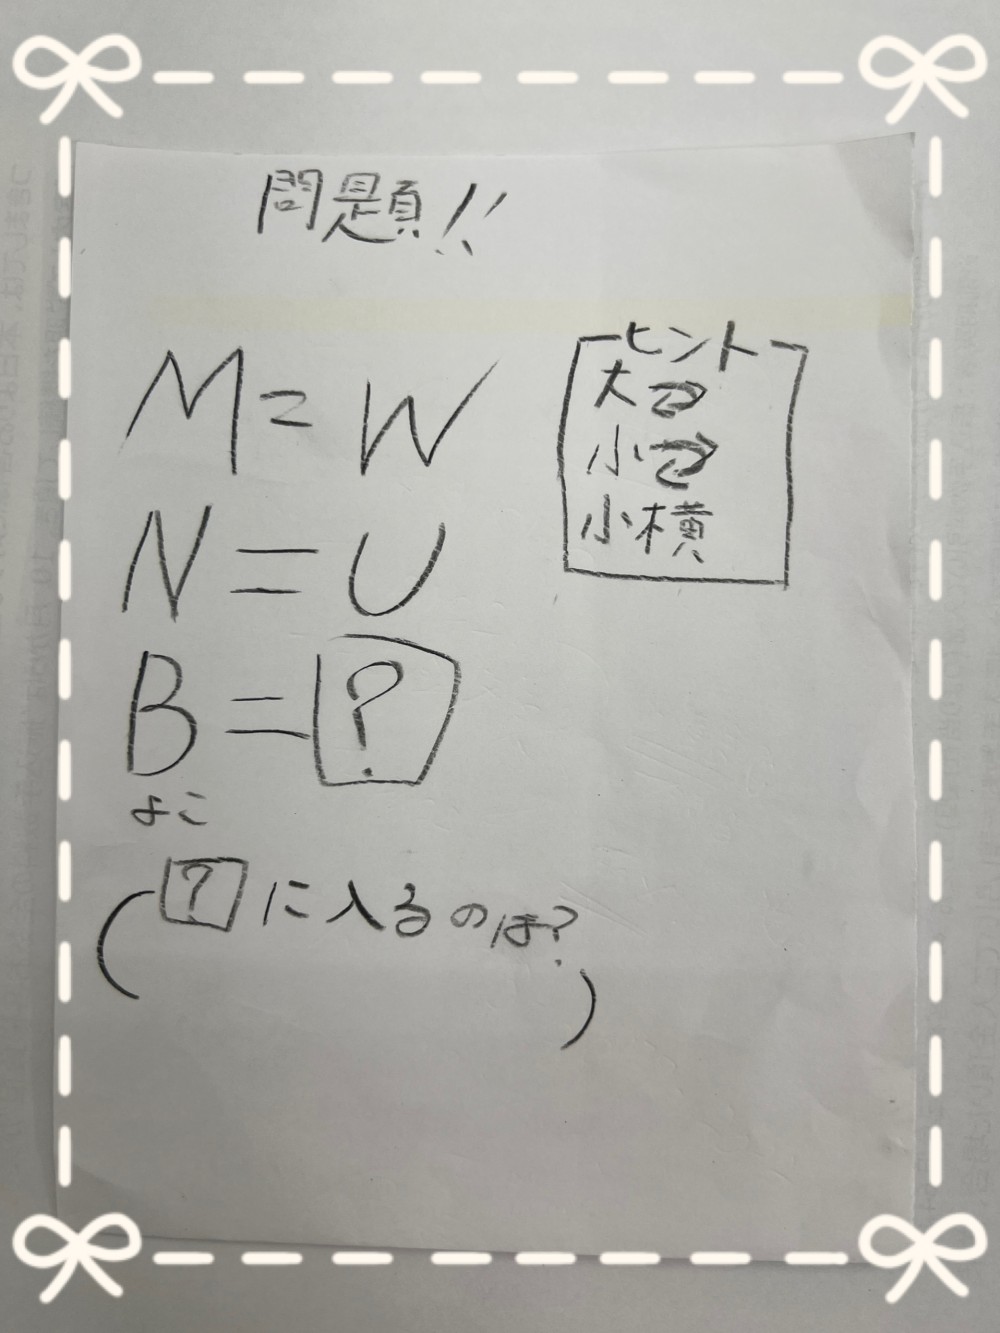 問題!!
M=W
N=U
B=?
よこ
(?に入るのは?)
ヒント
大
小
小横